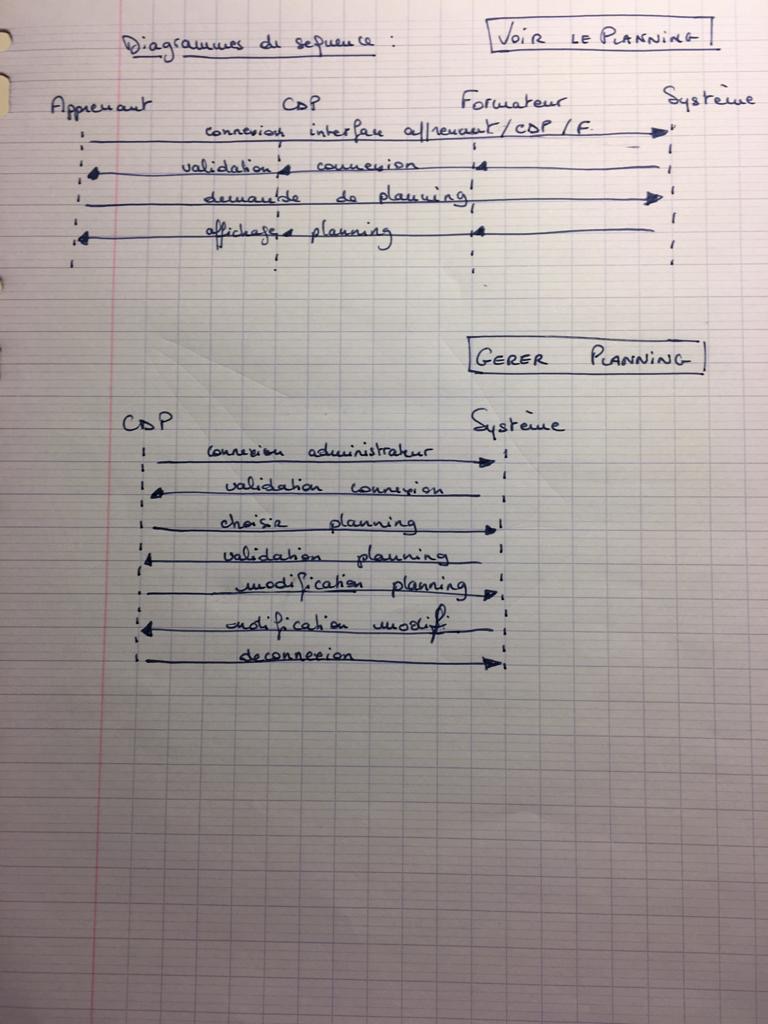 Diagrammes de sequence : VOIR LE PLANNING
Apprenant CDP Formateur Système
connexion interface apprenant/CDP/F.
validation connexion
demande de planning
affichage planning
GERER PLANNING
CDP Système
connexion administrateur
validation connexion
choisir planning
validation planning
modification planning
modif
deconnexion